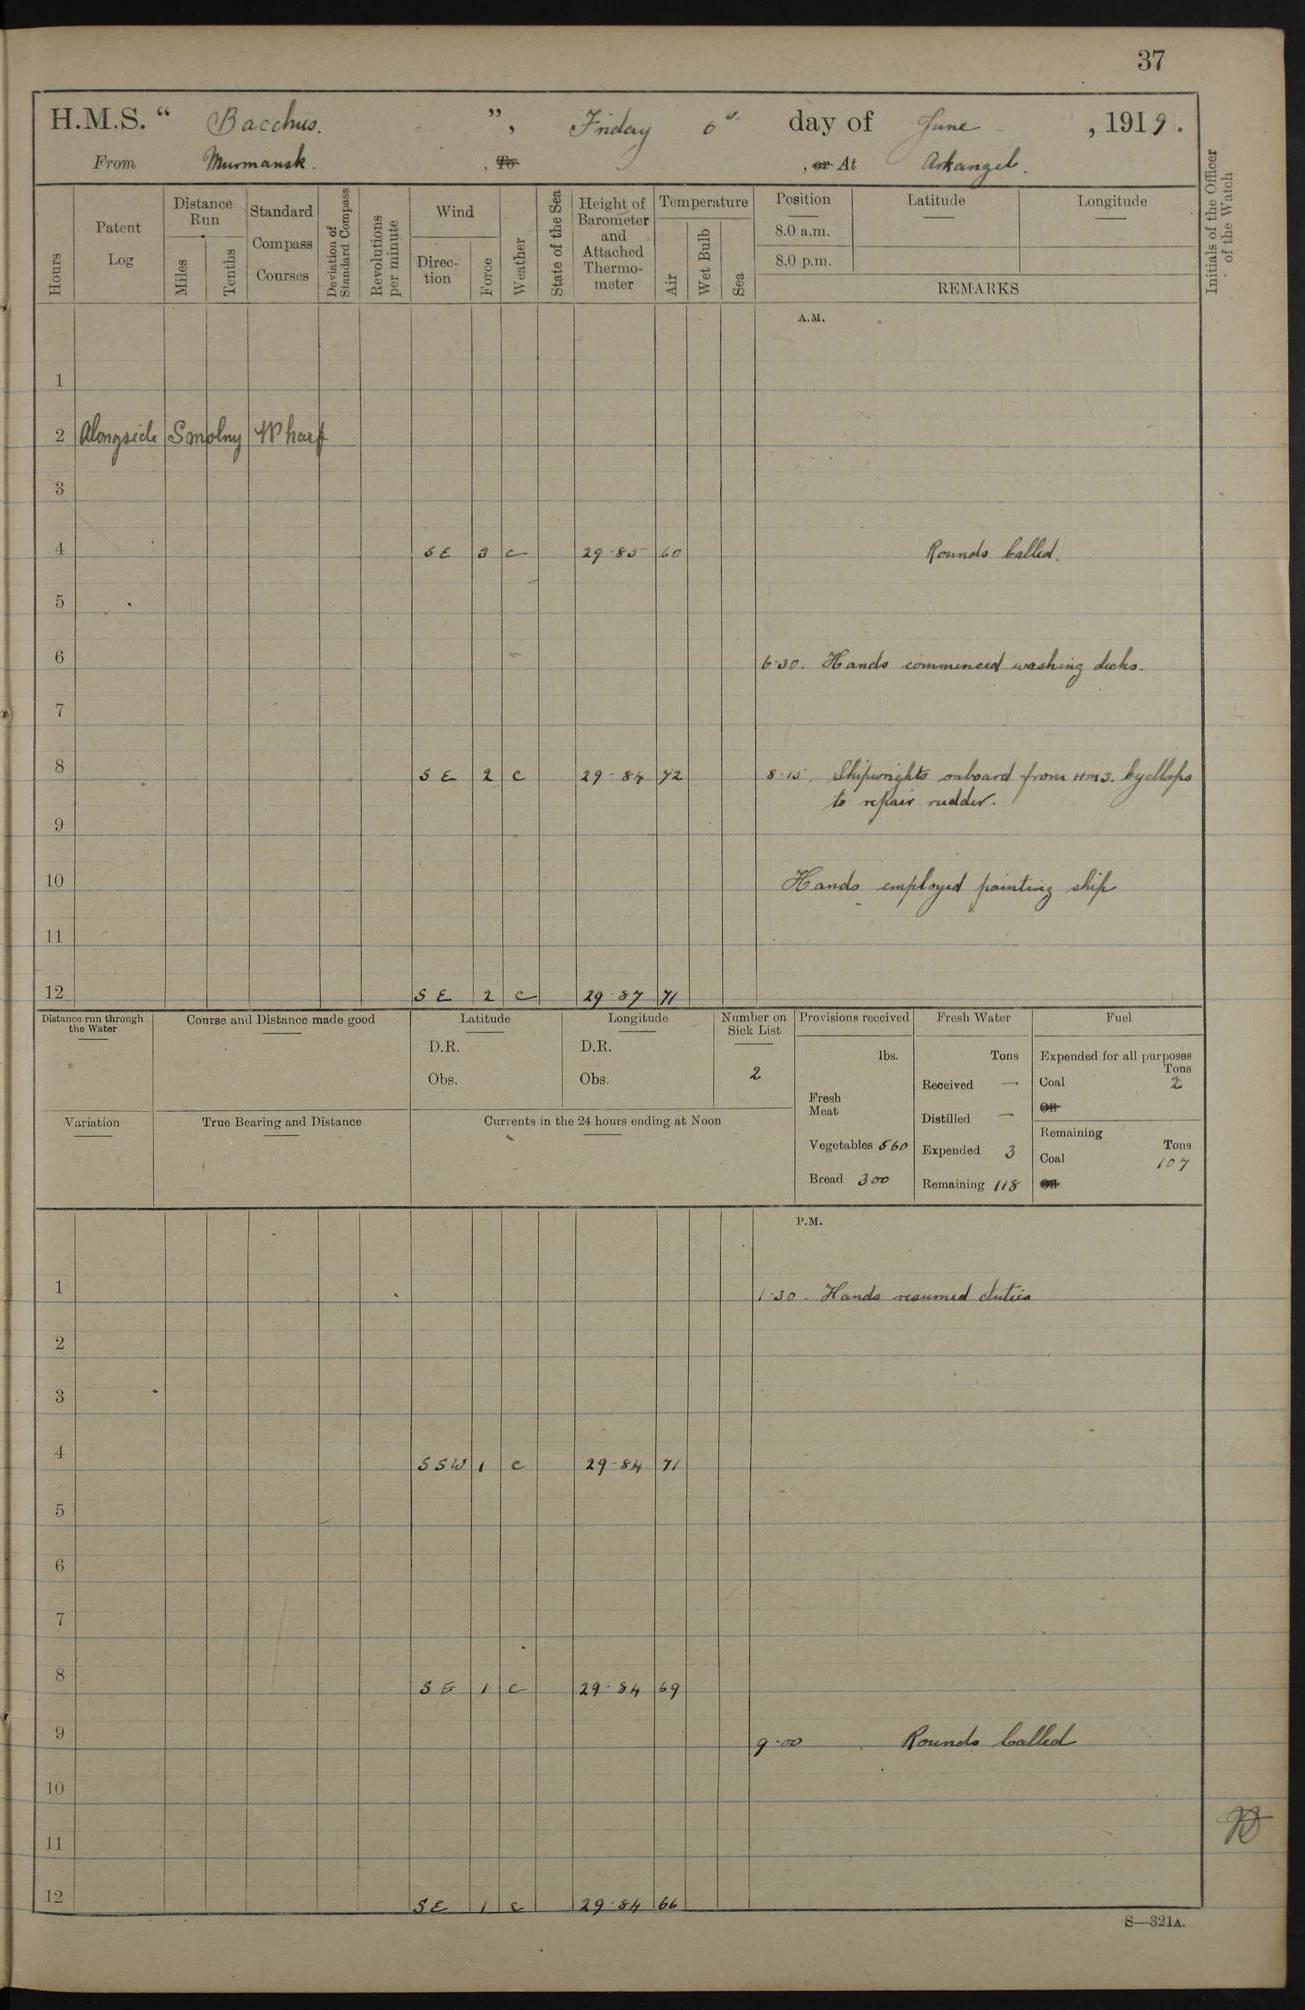 37
H.M.S. “ Bacchus. ”, Friday 6th day of June , 1919.
From Murmansk. , To , or At Arkangel.
Hours
Patent Log
Distance Run
Miles
Tenths
Standard Compass Courses
Deviation of Standard Compass
Revolutions per minute
Wind
Direction
Force
Weather
State of the Sea
Height of Barometer and Attached Thermometer
Temperature
Air
Wet Bulb
Sea
Position
8.0 a.m.
8.0 p.m.
Latitude
Longitude
REMARKS
Initials of the Officer of the Watch
A.M.
1
2 Alongside Smolny Wharf
3
4 SE 3 c 29-85 60 Rounds Called.
5
6 6-30. Hands commenced washing decks.
7
8 SE 2 c 29-84 72 8-15. Shipwrights onboard from HMS. Cycllops
to repair rudder.
9
10 Hands employed painting ship
11
12 SE 2 c 29-87 71
Distance run through the Water
Course and Distance made good
Latitude
D.R.
Obs.
Longitude
D.R.
Obs.
Number on Sick List
2
Provisions received
lbs.
Fresh Meat
Vegetables 560
Bread 300
Fresh Water
Tons
Received —
Distilled —
Expended 3
Remaining 118
Fuel
Expended for all purposes
Tons
Coal 2
Oil
Remaining
Tons
Coal 107
Oil
Variation
True Bearing and Distance
Currents in the 24 hours ending at Noon
P.M.
1 1-30. Hands resumed duties
2
3
4 SSW 1 c 29-84 71
5
6
7
8 SE 1 c 29-84 69
9 9-00 Rounds Called
10
11
12 SE 1 c 29-84 66
S—321A.